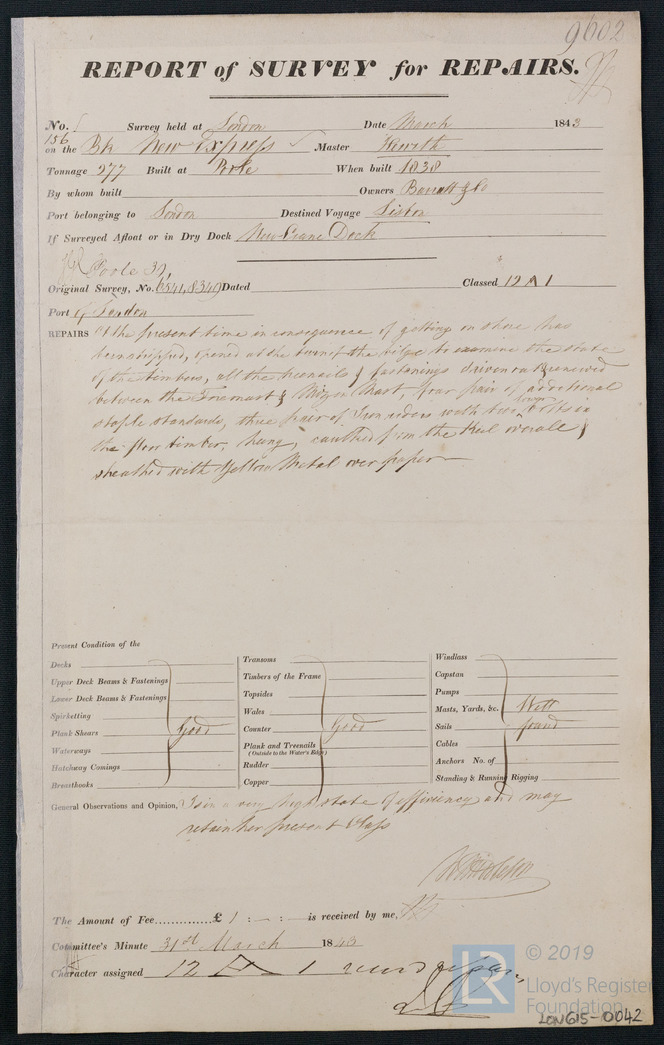 9602
REPORT of SURVEY for REPAIRS.
No. Survey held at London Date March 1843
156 on the Bk New Express Master
Tonnage 277 Built at Poole When built 1838
By whom built Owners Barratt & Co
Port belonging to London Destined Voyage Lisbon
If Surveyed Afloat or in Dry Dock New Crane Dock
Poole 39,
Original Survey, No. 6541, 8349 Dated Classed 12 A 1
Port of London
REPAIRS At the present time in consequence of getting on shore has
been stripped, opened at the turn of the bilge to examine the state
of the timbers, all the treenails & fastenings driven out & renewed
between the Foremast & Mizen Mast, four pair of additional
staple standards, three pair of Iron riders with two lower bolts in
the floor timber, hung, caulked from the Keel overall &
sheathed with Yellow Metal over paper
Present Condition of the
Decks
Upper Deck Beams & Fastenings
Lower Deck Beams & Fastenings
Spirketting
Plank Shears Good
Waterways
Hatchway Comings
Breasthooks
Transoms
Timbers of the Frame
Topsides
Wales
Counter Good
Plank and Treenails
(Outside to the Water's Edge)
Rudder
Copper
Windlass
Capstan
Pumps
Masts, Yards, &c. Well
Sails found
Cables
Anchors No. of
Standing & Running Rigging
General Observations and Opinion, Is in a very high state of efficiency and may
retain her present Class
The Amount of Fee £ 1 : — : — is received by me,
Committee's Minute 31st March 1843
Character assigned 12 A 1
© 2019
LR Lloyd's Register
Foundation
LON615-0042